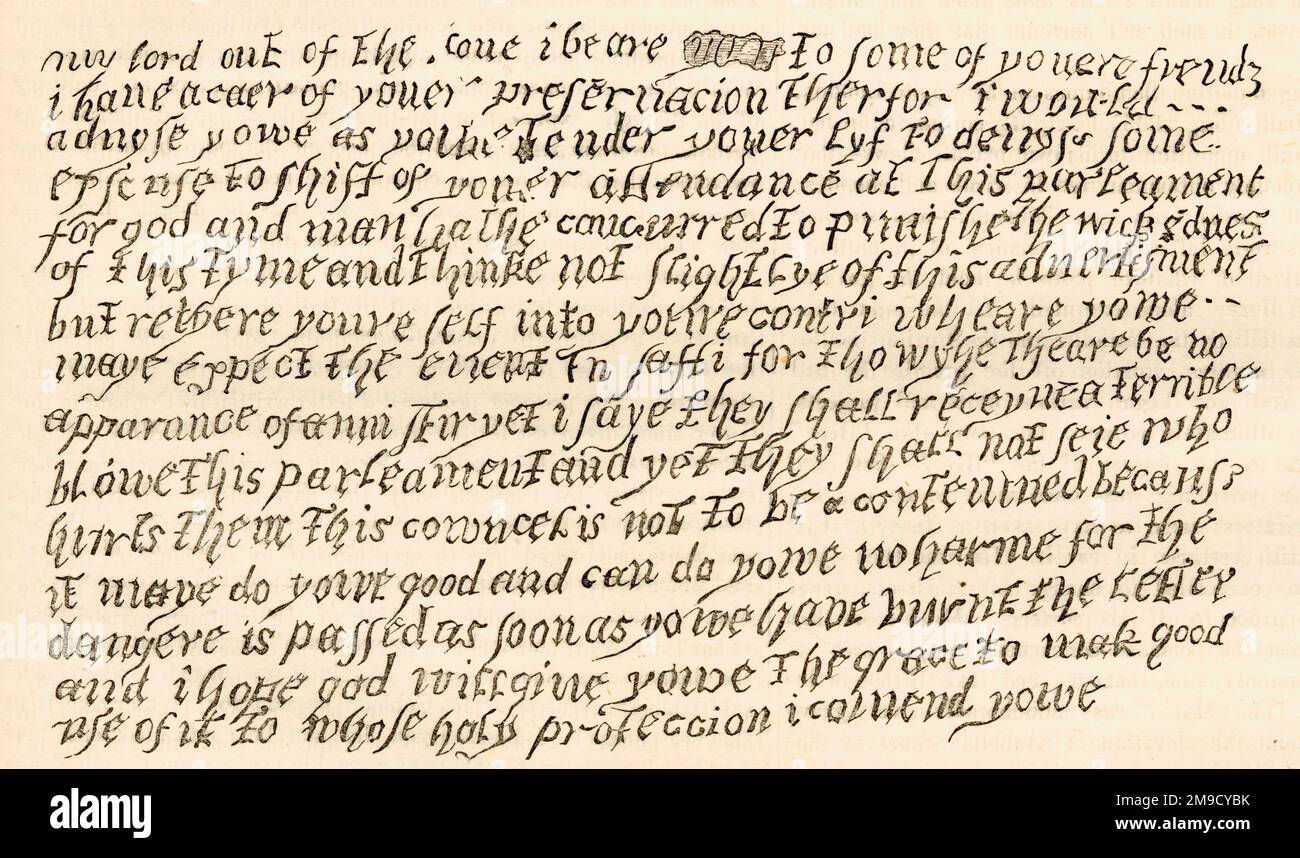 my lord out of the . loue i beare to some of youere frendz
i haue a caer of youer preseruacion therfor i would - - -
aduyse yowe as yowe tender youer lyf to deuyse some
exscuse to shift of youer attendance at this parleament
for god and man hathe concurred to punishe the wickednes
of this tyme and thinke not slightlye of this aduertisment
but retyere youre self into youre contri wheare yowe - -
maye expect the euent in safti for thowghe theare be no
apparance of anni stir yet i saye they shall receyue a terrible
blowe this parleament and yet they shall not seie who
hurts them this cowncel is not to be a contemned because
it maye do yowe good and can do yowe no harme for the
dangere is passed as soon as yowe have burnt the letter
and i hope god will giue yowe the grace to mak good
use of it to whose holy proteccion i comend yowe
alamy
Image ID: 2M9CYBK
www.alamy.com